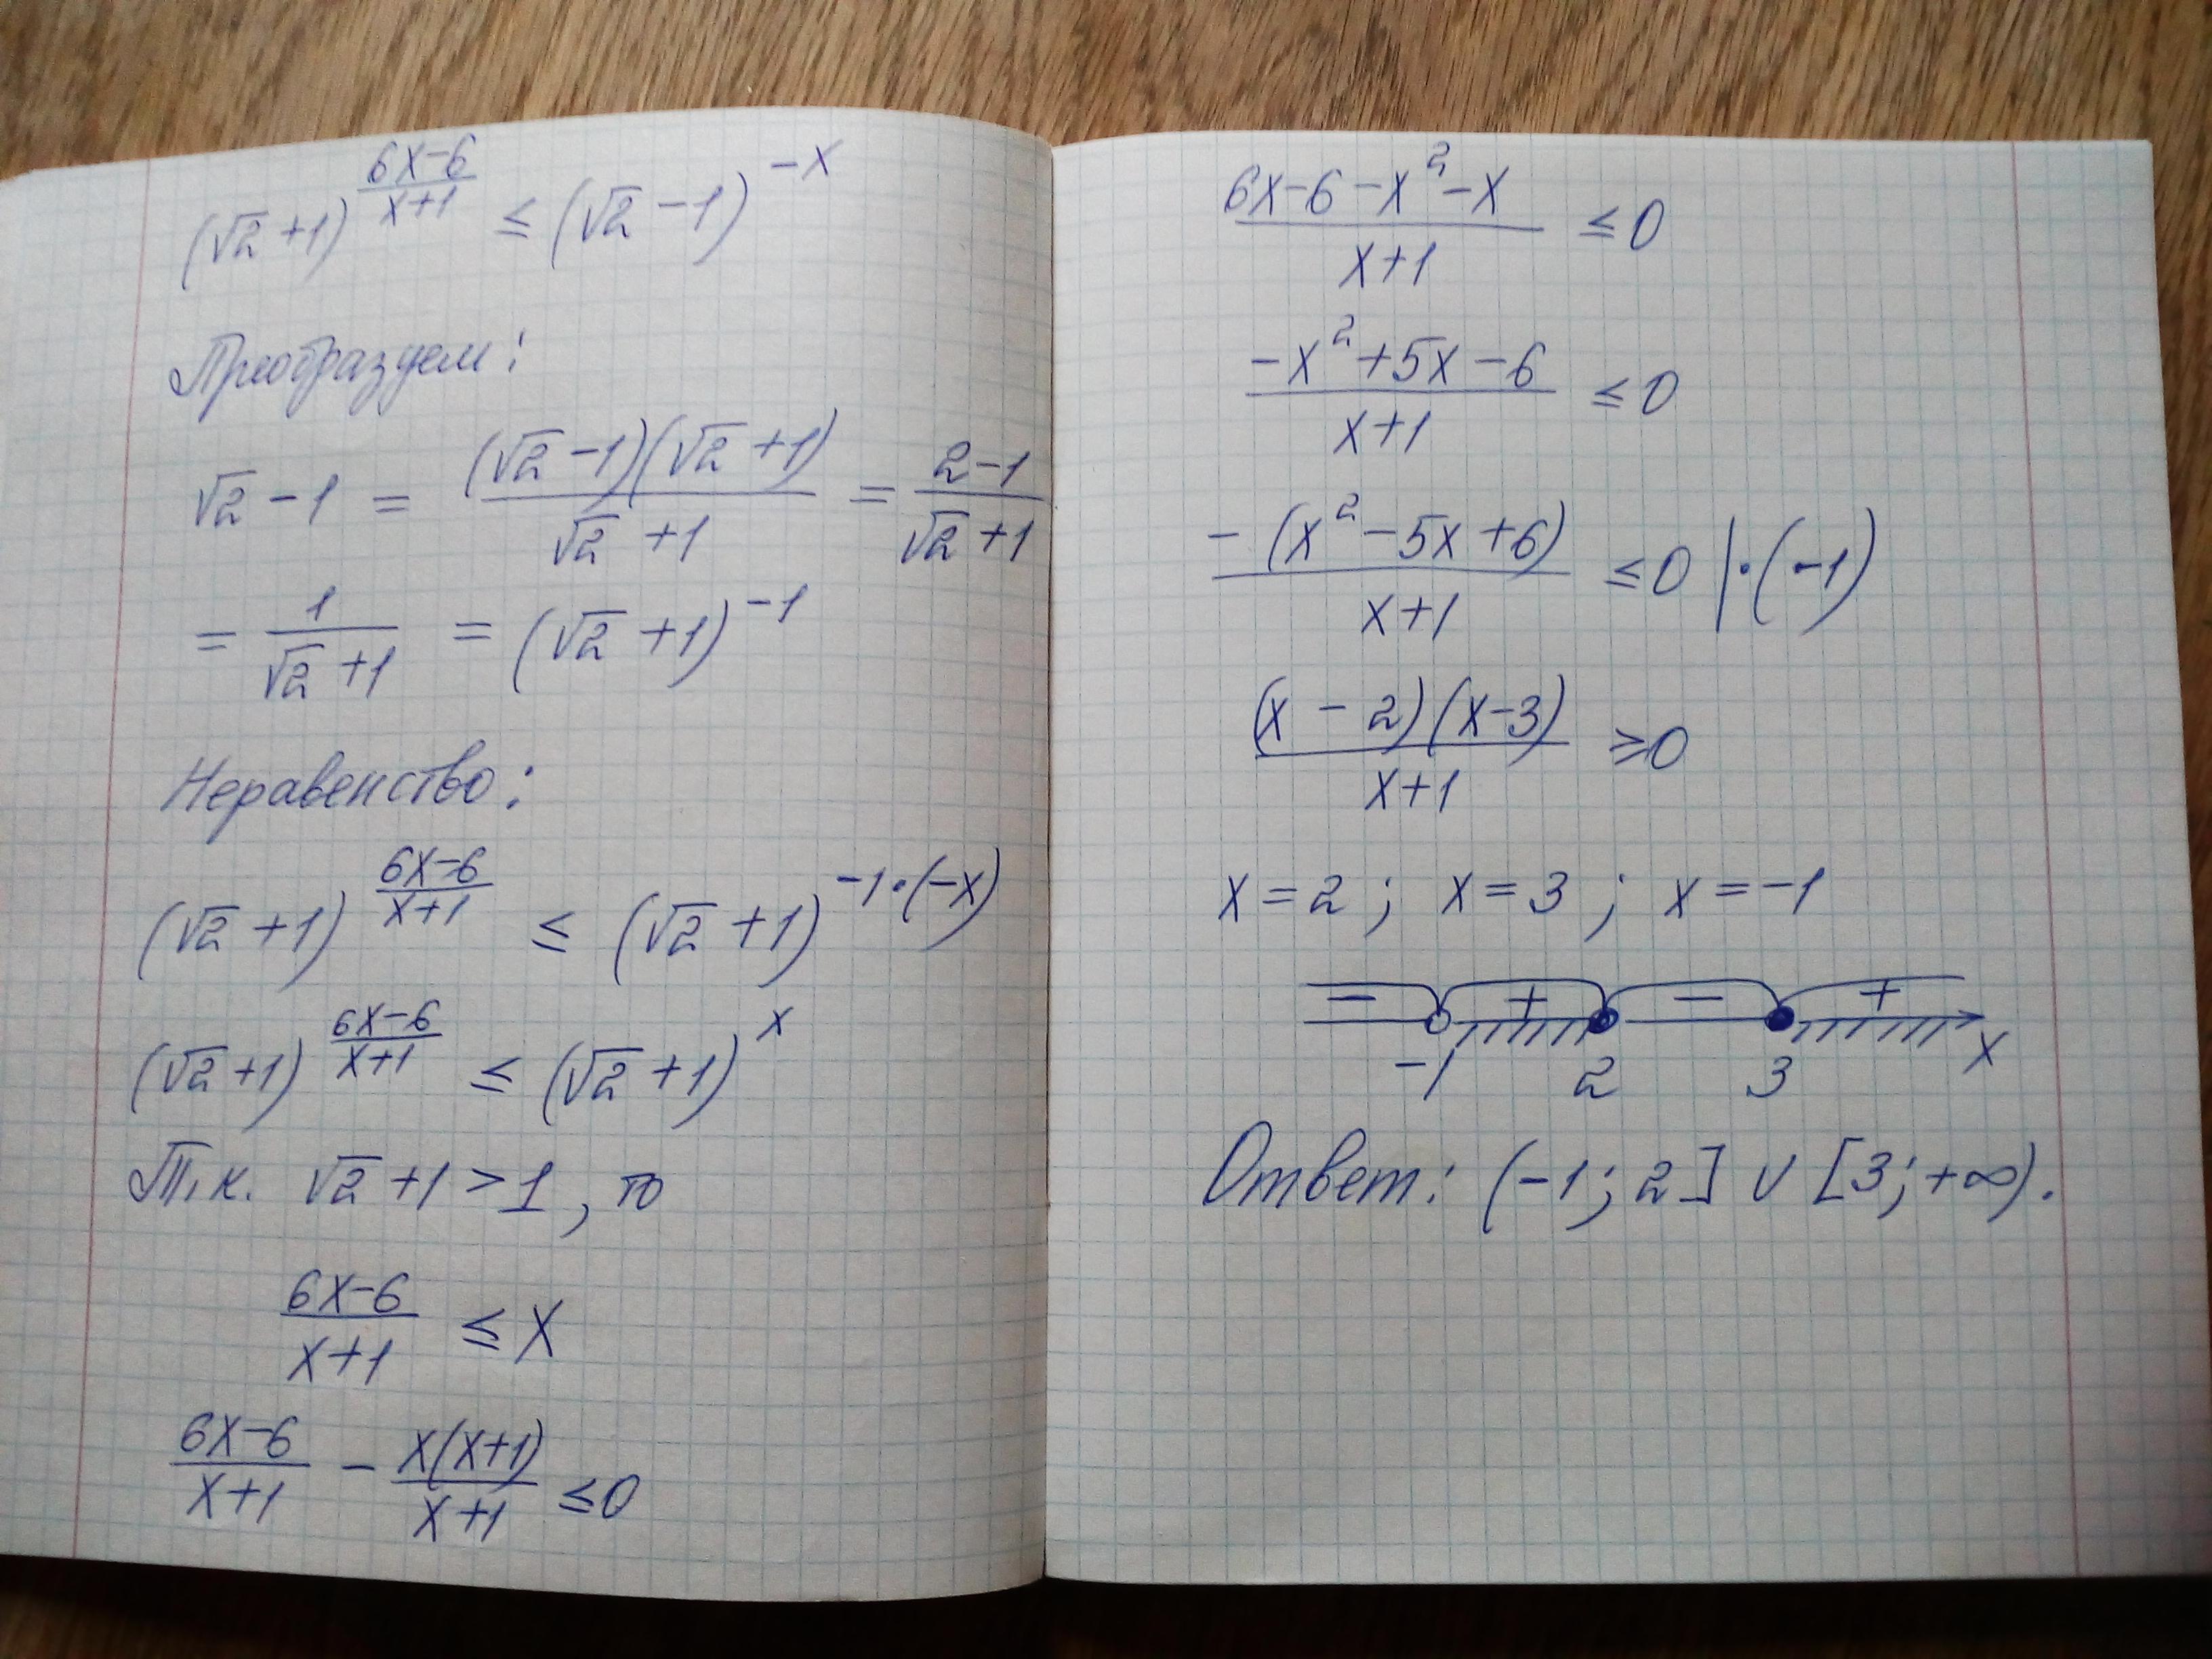 (√2+1)^((6x-6)/(x+1)) ≤ (√2-1)^(-x)
Преобразуем:
√2-1 = ((√2-1)(√2+1))/(√2+1) = (2-1)/(√2+1)
= 1/(√2+1) = (√2+1)^(-1)
Неравенство:
(√2+1)^((6x-6)/(x+1)) ≤ (√2+1)^(-1·(-x))
(√2+1)^((6x-6)/(x+1)) ≤ (√2+1)^x
Т.к. √2+1>1, то
(6x-6)/(x+1) ≤ x
(6x-6)/(x+1) - (x(x+1))/(x+1) ≤0
(6x-6-x²-x)/(x+1) ≤0
(-x²+5x-6)/(x+1) ≤0
(-(x²-5x+6))/(x+1) ≤0 |·(-1)
((x-2)(x-3))/(x+1) ≥0
x=2; x=3; x=-1
- + - +
-1 2 3 x
Ответ: (-1;2] ∪ [3;+∞).